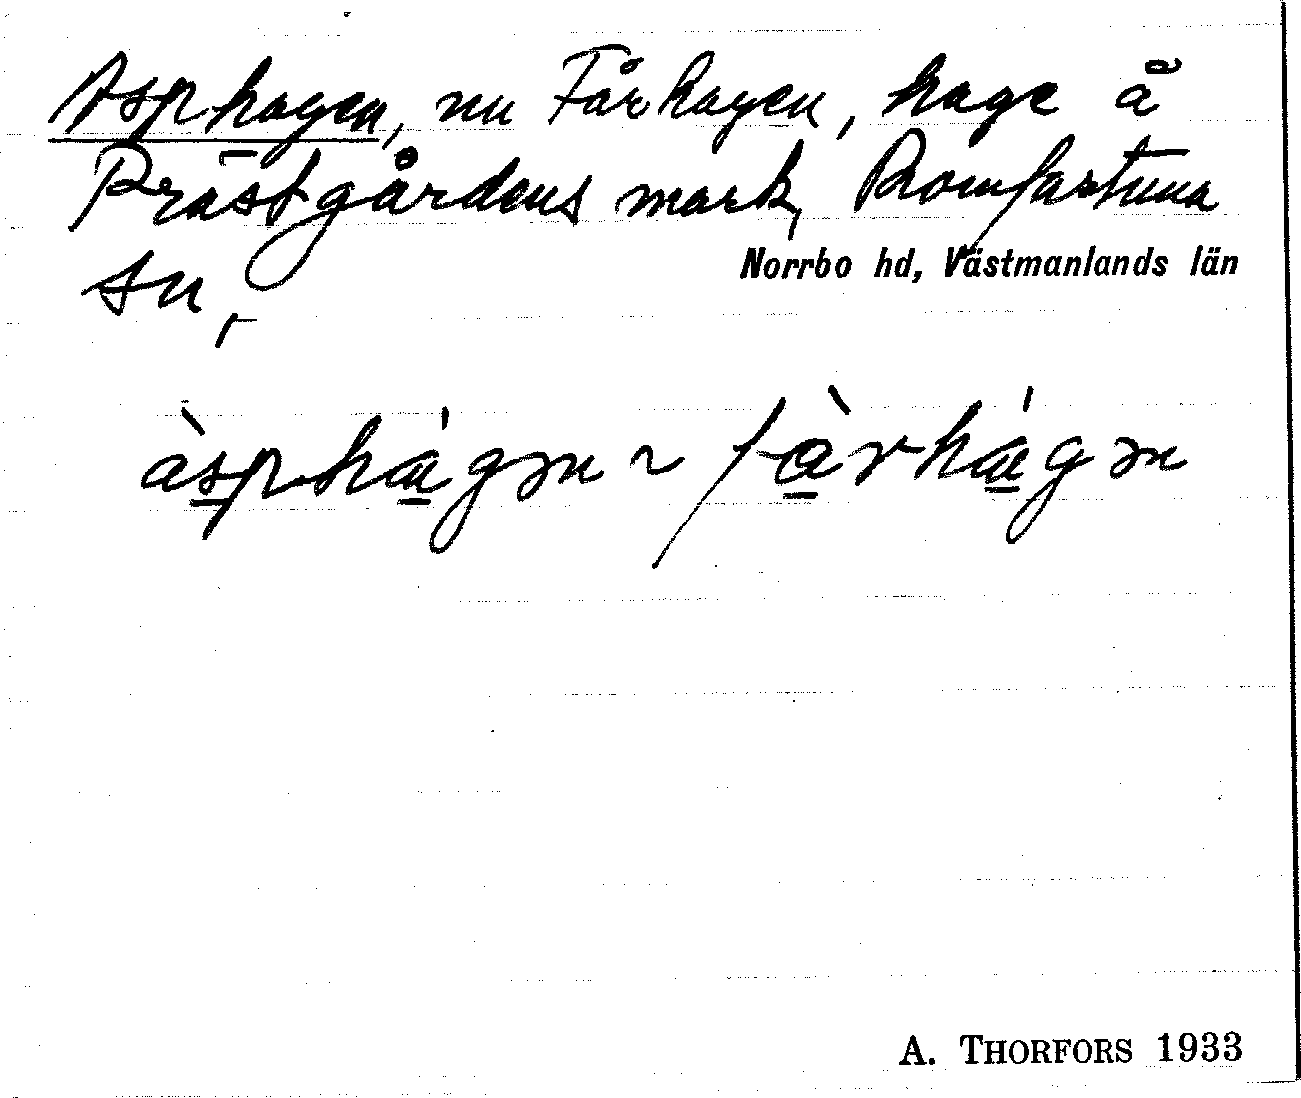 Asphagen, nu Fårhagen, hage å
Prästgårdens mark, Romfartuna
sn,
Norrbo hd, Västmanlands län
àsphágən ~ fàrhágən
A. THORFORS 1933